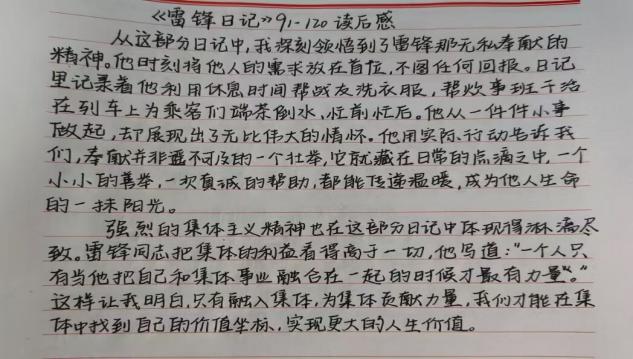 《雷锋日记》91-120读后感
从这部分日记中,我深刻领悟到了雷锋那无私奉献的
精神。他时刻将他人的需求放在首位,不图任何回报。日记
里记录着他利用休息时间帮战友洗衣服,帮炊事班干活
在列车上为乘客们端茶倒水,忙前忙后。他从一件件小事
做起,却展现出了无比伟大的情怀。他用实际行动告诉我
们,奉献并非遥不可及的一个壮举,它就藏在日常的点滴之中,一个
小小的善举,一次真诚的帮助,都能传递温暖,成为他人生命
的一抹阳光。
强烈的集体主义精神也在这部分日记中体现得淋漓尽
致。雷锋同志把集体的利益看得高于一切,他写道:“一个人只
有当他把自己和集体事业融合在一起的时候才最有力量”。
这样让我明白,只有融入集体,为集体贡献力量,我们才能在集
体中找到自己的价值坐标,实现更大的人生价值。